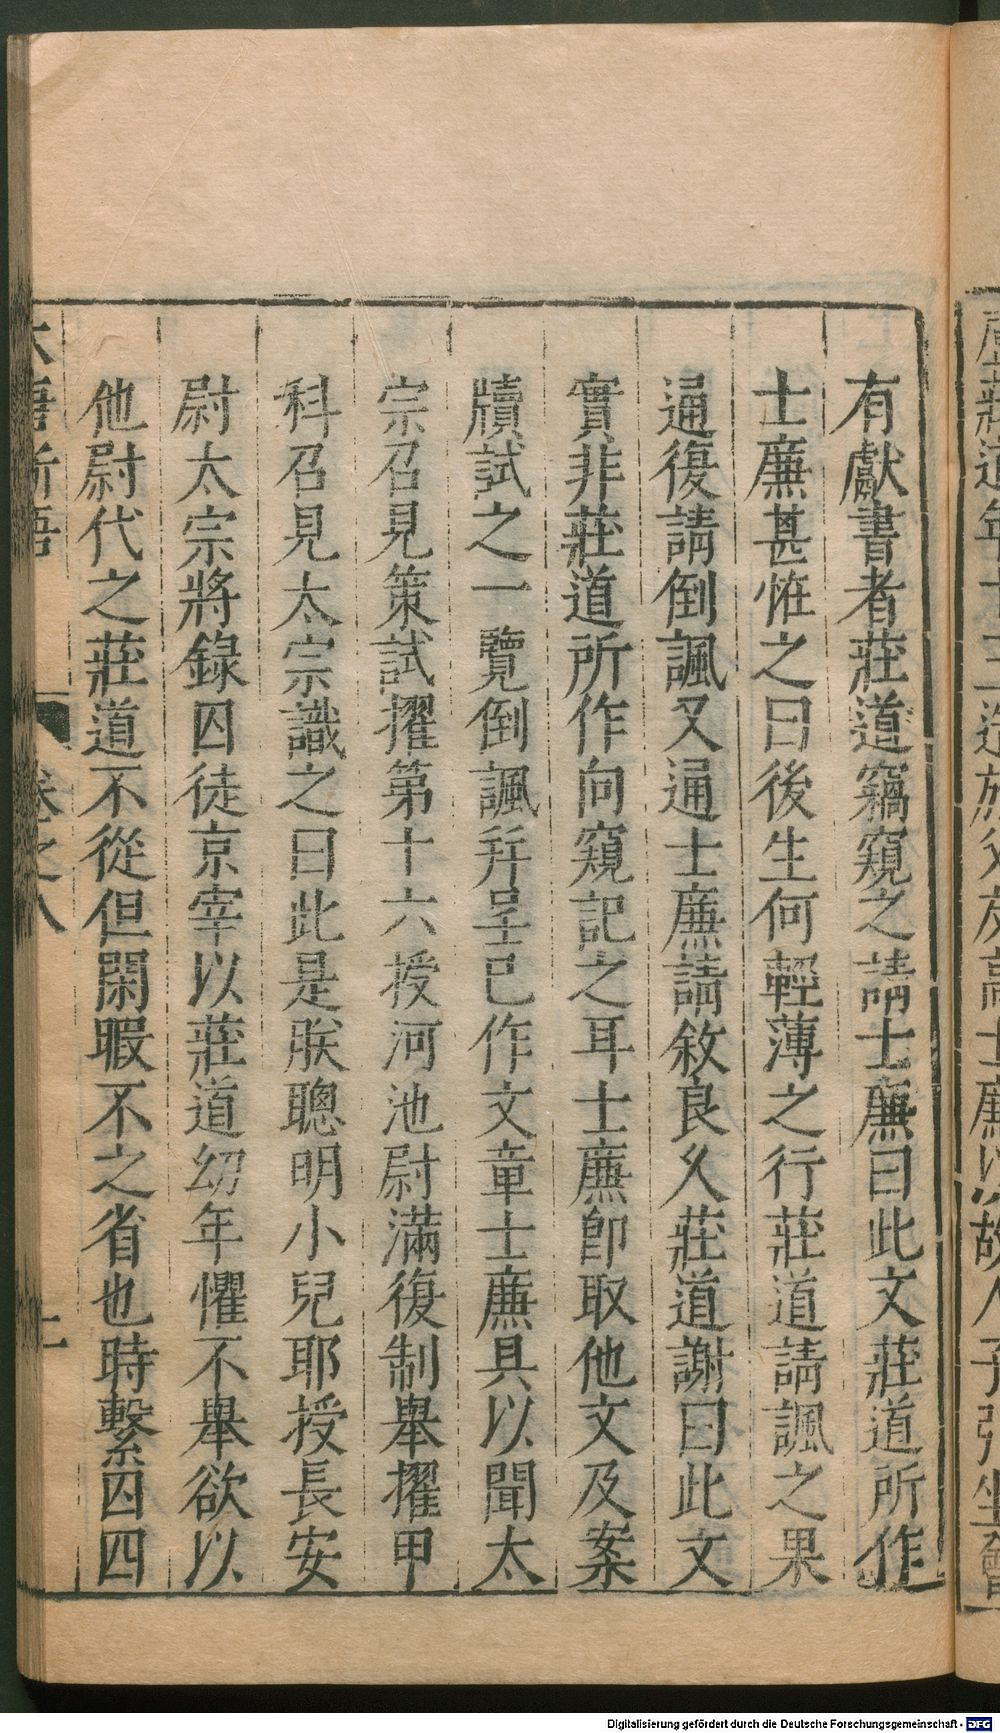 有獻書者莊道竊窺之請士廉曰此文莊道所作
士廉甚怪之曰後生何輕薄之行莊道請諷之果
通復請倒諷又通士廉請敘良久莊道謝曰此文
實非莊道所作向窺記之耳士廉卽取他文及案
牘試之一覽倒諷幷呈己作文章士廉具以聞太
宗召見策試擢第十六授河池尉滿復制舉擢甲
科召見太宗識之曰此是朕聰明小兒耶授長安
尉太宗將錄囚徒京宰以莊道幼年懼不舉欲以
他尉代之莊道不從但閑暇不之省也時繫囚四
唐新語
卷之八
Digitalisierung gefördert durch die Deutsche Forschungsgemeinschaft - DFG